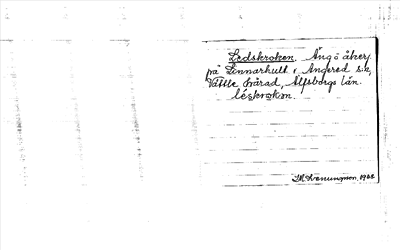 Ledskroken Äng o åker,
på Linnarhult i Angered s:n,
Vättle härad, Älfsborgs län.
léskrokən.